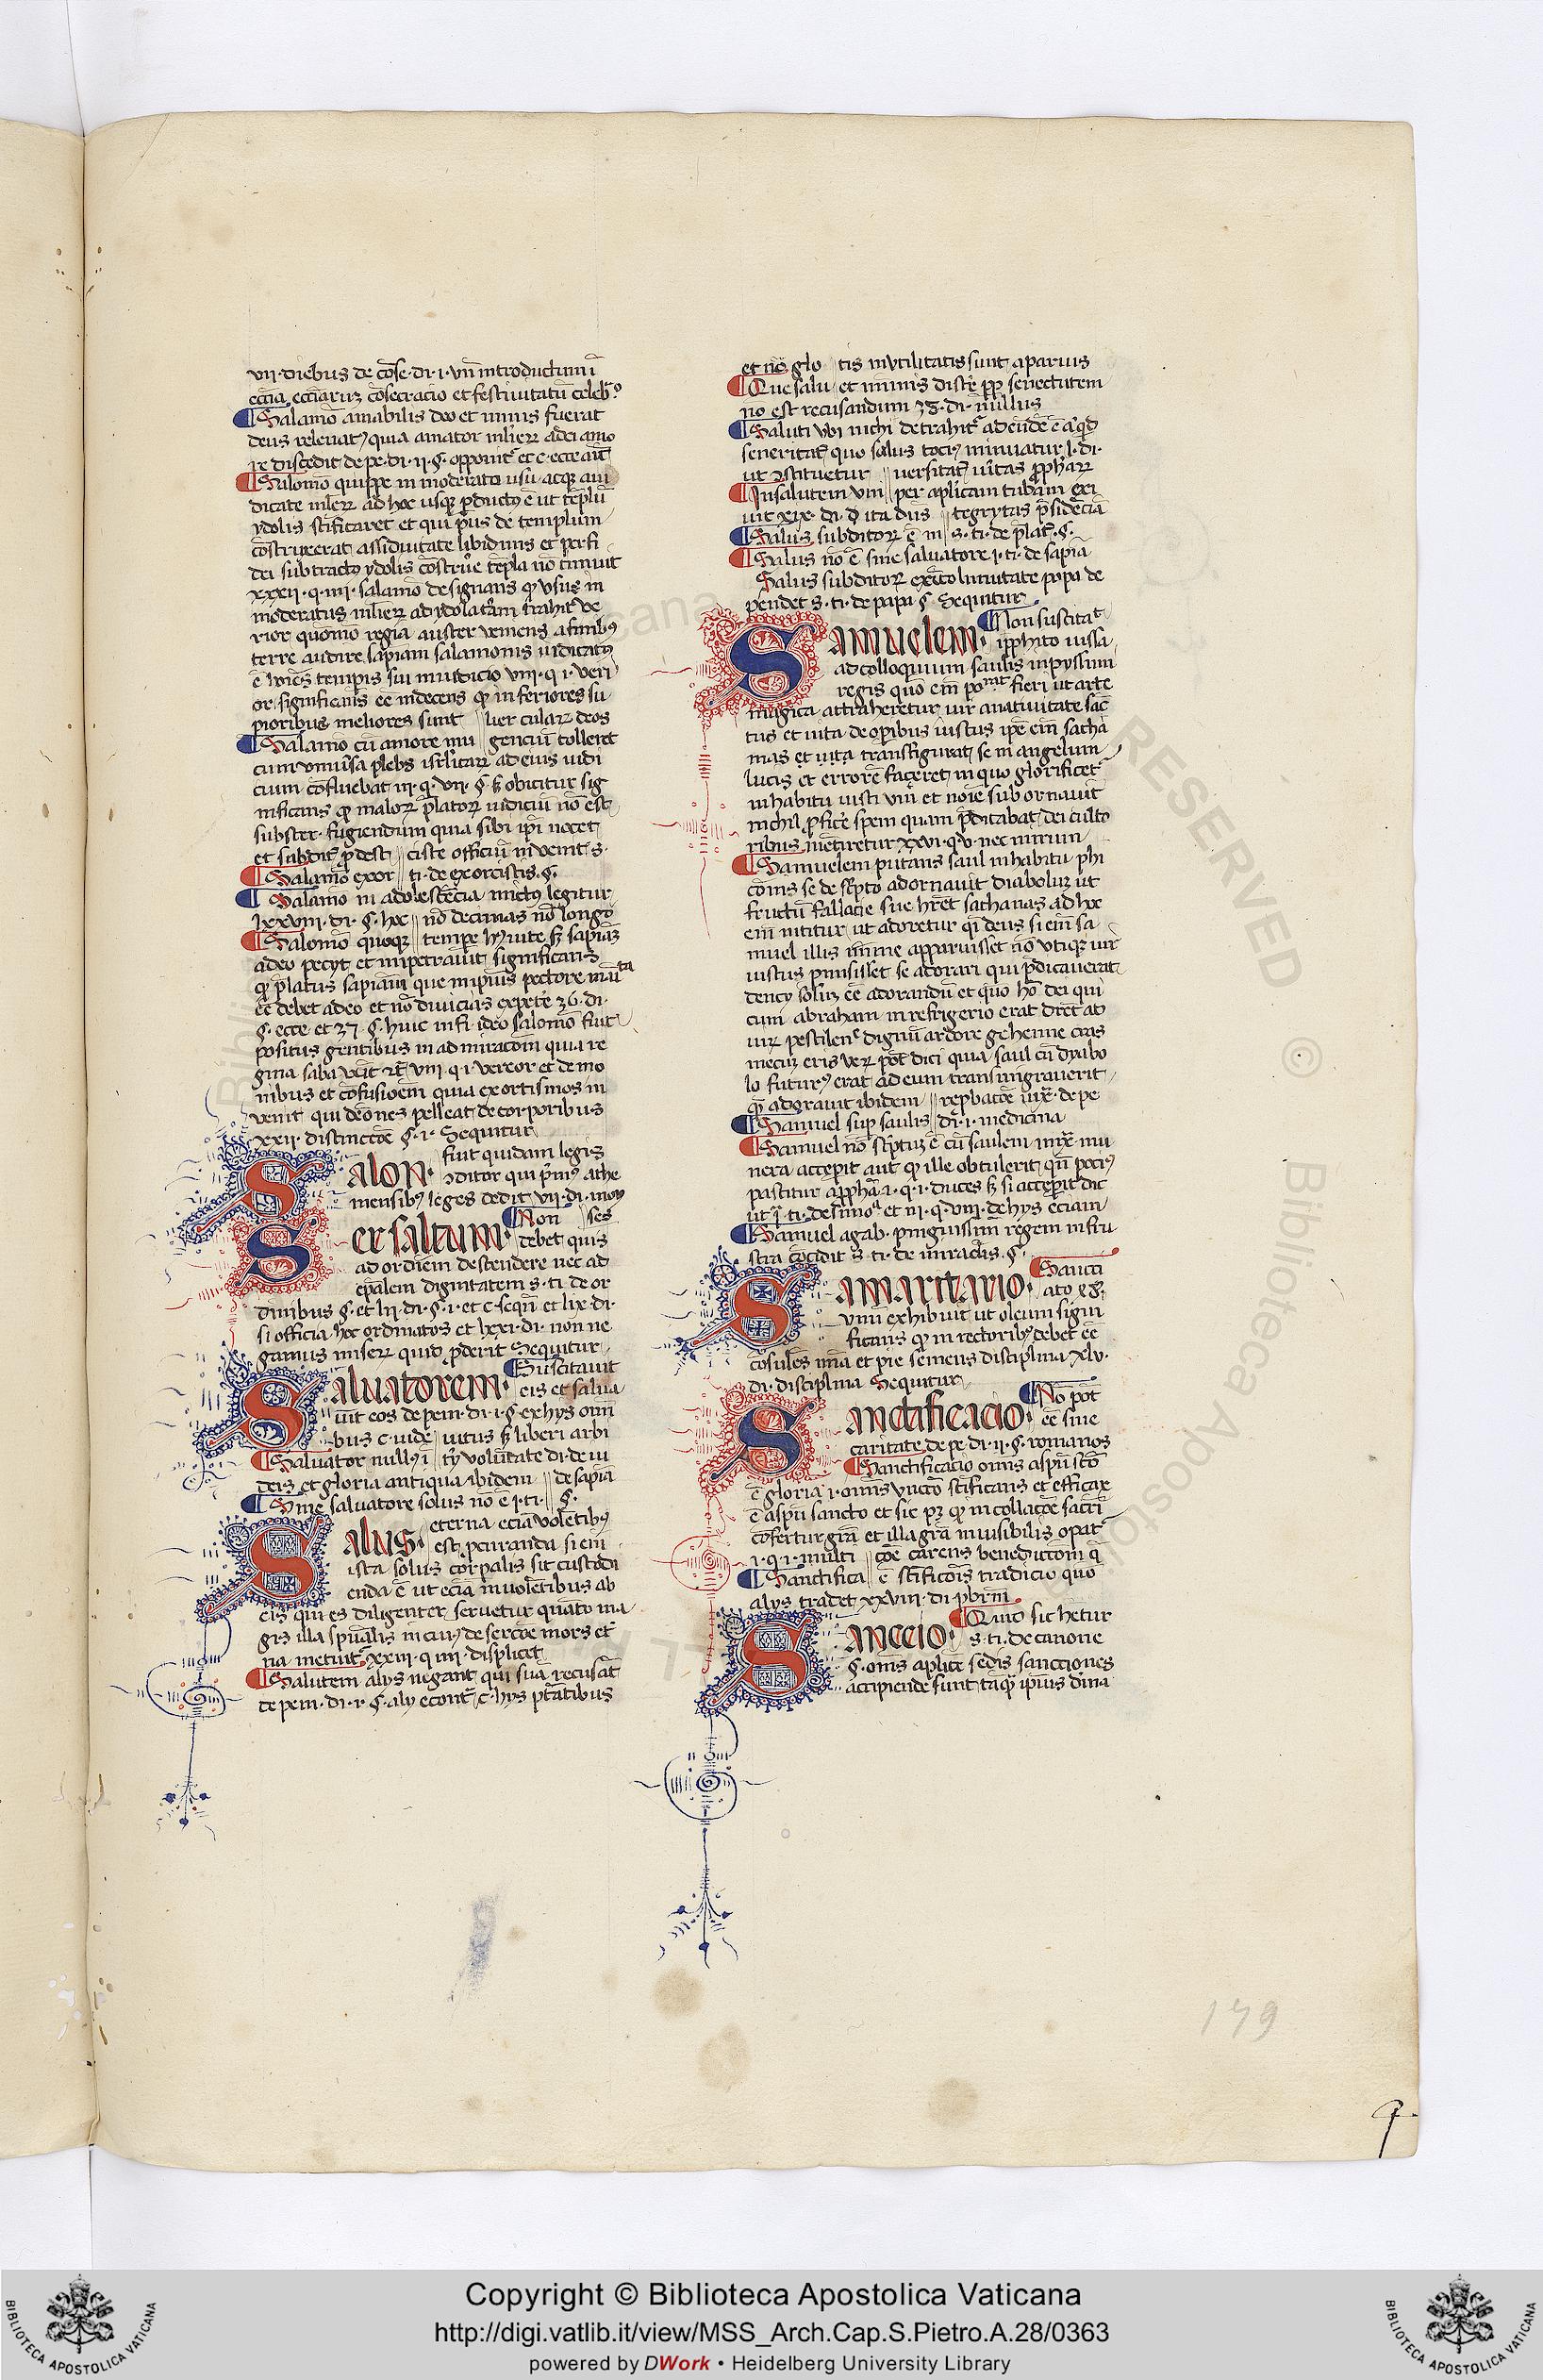 vii · diebus de cōse · di · i · vn̄ introductum ī
ecc̄ia ecc̄iaruz cōsecracio et festiuitatū celeb
Salamō amabilis deo et nimis fuerat
deus releuat quia amator mlieꝝ a dei amo
re discedit de pe · di · ii · §. opponit et c · ecce aūt
Salomō quippe in moderato usu atqꝫ
dicate mlieꝝ ad hoc usqꝫ pductꝰ ē ut tēplū
ydolis sc̄ificaret et qui prius de templum
cōstruxerat assiduitate libidinis et perfi
dei subtractꝰ ydolis cōstrue tēpla nō timuit
xxxii · q · iiii · salamō designans ꝙ vsus in
moderatus mlieꝝ ad ydolatriam trahit ve
rior quomō regia auster veniens a finibꝰ
terre audire sapiam salamonis iudicatꝰ
ē hoīes tempis sui in iudicio viii · q · i · veri
or significans ee indecens ꝙ inferiores su
pioribus meliores sunt uer culaꝝ deos
Salamō cū amore mu genciū tolleret
cum vniūsa plebs isrlicaꝝ ad eius iudi
cium cōfluebat iii · q · vii · §. obicitur sig
nificans ꝙ maloꝝ platoꝝ iudiciū nō est
subster · fugiendum quia sibi ipi nocet
et subdit pdest ciste officiū inuenit s ·
Salamō exor ti · de exorcistis · §.
Salamō in adolescēcia mictus legitur
lxxviii · di · §. hoc nō decimas nō longo
Salomō quoqꝫ tempe sapiaz
a deo pecyt et impetrauit significans
ꝙ platus sapiam que
ee debet a deo et nō diuicias expete 36 · di ·
§. ecce et 37 §. huic infi · ideo salomō fuit
positus gentibus in admiratōem quia re
gina saba venit viii · q · i · vereor et demo
nibus et cōfusioem quia exorcismos in
uenit qui demones pelleat de corporibus
xxii · distinctōe §. i · Sequitur
Salon · fuit quidam legis
ꝯditor qui primꝰ athe
niensibꝰ leges dedit vii · di · moy
Per saltum Non ses
debet quis
ad ordinem descendere nec ad
epalem dignitatem s · ti · de or
dinibus §. et lii · di · §. i · et c · sequi et lix · di ·
si officia hoc ordinatos et lxxi · di · non ne
gamus miseꝝ quid pderit Sequitur
Saluatorem Suscitauit
eis et salua
uit eos de peni · di · i · §. ex hys om̄i
bus c · vide uitus liberi arbi
Saluator nullus ī volūtate di · de iu
deis et gloria antiqua ibidem de sapia
Sine saluatore solus nō ē i · ti · §.
Salus · eterna eciā volētibꝰ
est pcuranda si em̄
ista solus corpalis sit custodi
enda ē ut eciā inuolētibus ab
eis qui es diligenter seruetur quāto ma
gis illa spualis in cuiꝰ desercōe mors et
na metuit xxiii · q · iiii · displicet
Salutem alys negant qui suā recusāt
de peni · di · i · §. aly econt c · hys ptatibus
et nō glo tis inutilitatis sunt a paruis
Que salu et minis distē ppͣ senectutem
no est recusandum 38 · di · nullus
Saluti vbi nichi detrahit
seueritat quo salus tociꝰ minuatur l · di ·
ut ꝯstituetur uersitat uitas ppharꝝ
In salutem vni per aplicam tubam exi
uit xix · di · ita dn̄s tegrytas psidēcia
Salus subditoꝝ ē in s · ti · de plat · §.
Salus nō ē sine saluatore i · ti · de sapia
Salus subditoꝝ papa de
pendet s · ti · de papa §. Sequitur
Samuelem Non suscitat
ipphito iussa
ad colloquium saulis inpyssimi
regis quō em̄ pomt fieri ut arte
magica attraheretur uir a natiuitate sāc
tus et uita de opibus iustus ipe em̄ satha
nas et uita transfigurat se in angelum
lucis et errorē faceret in quo glorificet
in habitu iusti viri et noīe subornauit
nichil pfice spem quam pdicabat dei culto
ribus mētiretur xxvi · q · v · nec mirum
Samuelem putans saul in habitu phi
comis se de scpto adornauit diabolus ut
fructū fallacie sue hret sathanas ad hoc
em̄ nititur ut adoretur qi deus si em̄ sa
muel illis mime apparuisset nō utiqꝫ uir
iustus pmisisset se adorari qui pdicauerat
deū solū ee adorandū et quō hō dei qui
cum abraham in refrigerio erat dicet ad
uiꝝ pestilen dignū ardore gehenne cras
mecuz eris veꝝ pōt dici quia saul cū dyabo
lo futurꝰ erat ad eum transmigrauerit
adorauit ibidem repbatōe de pe
Samuel sup saulis di · i · medicina
Samuel nō scptuz ē cū saulem mu
nera acceperit aut ꝙ ille obtulerit
pascitur a ppha i · q · i · duces si acceperit dic
ut ti · de simo et iii · q · viii · de hys eciam
Samuel agab pinguissimū regem in fru
stra cōcidit s · ti · de miraclis · §.
Samaritario Sauci
ato
vinū exhibuit ut oleum signi
ficans ꝙ in rectoribꝰ debet ee
cōsules mīa et pie semens disciplina xlv ·
di · disciplina Sequitur
Sanctificacio Nō pōt
ee sine
caritate de pe · di · ii · §. romanos
Sanctificacio om̄is aspū scō
ē gloria i · om̄is vnctō sc̄ificans et efficax
ē a spū sancto et sic ꝙ in collacōe sacri
cōfertur grā et illa grā inuisibilis opat
i · q · i · multi cōe carens benedictōm
Sanctifica ē sc̄ificōis tradicio quo
alys tradet xxviii · di · pbrm
Sanccio Quid sic hetur
s · ti · de canone
§. om̄s aplice sedis sancciones
accipiende sunt taqꝫ ipius diuina
179
Copyright © Biblioteca Apostolica Vaticana
http://digi.vatlib.it/view/MSS_Arch.Cap.S.Pietro.A.28/0363
powered by DWork • Heidelberg University Library
BIBLIOTECA APOSTOLICA VATICANA
BIBLIOTECA APOSTOLICA VATICANA